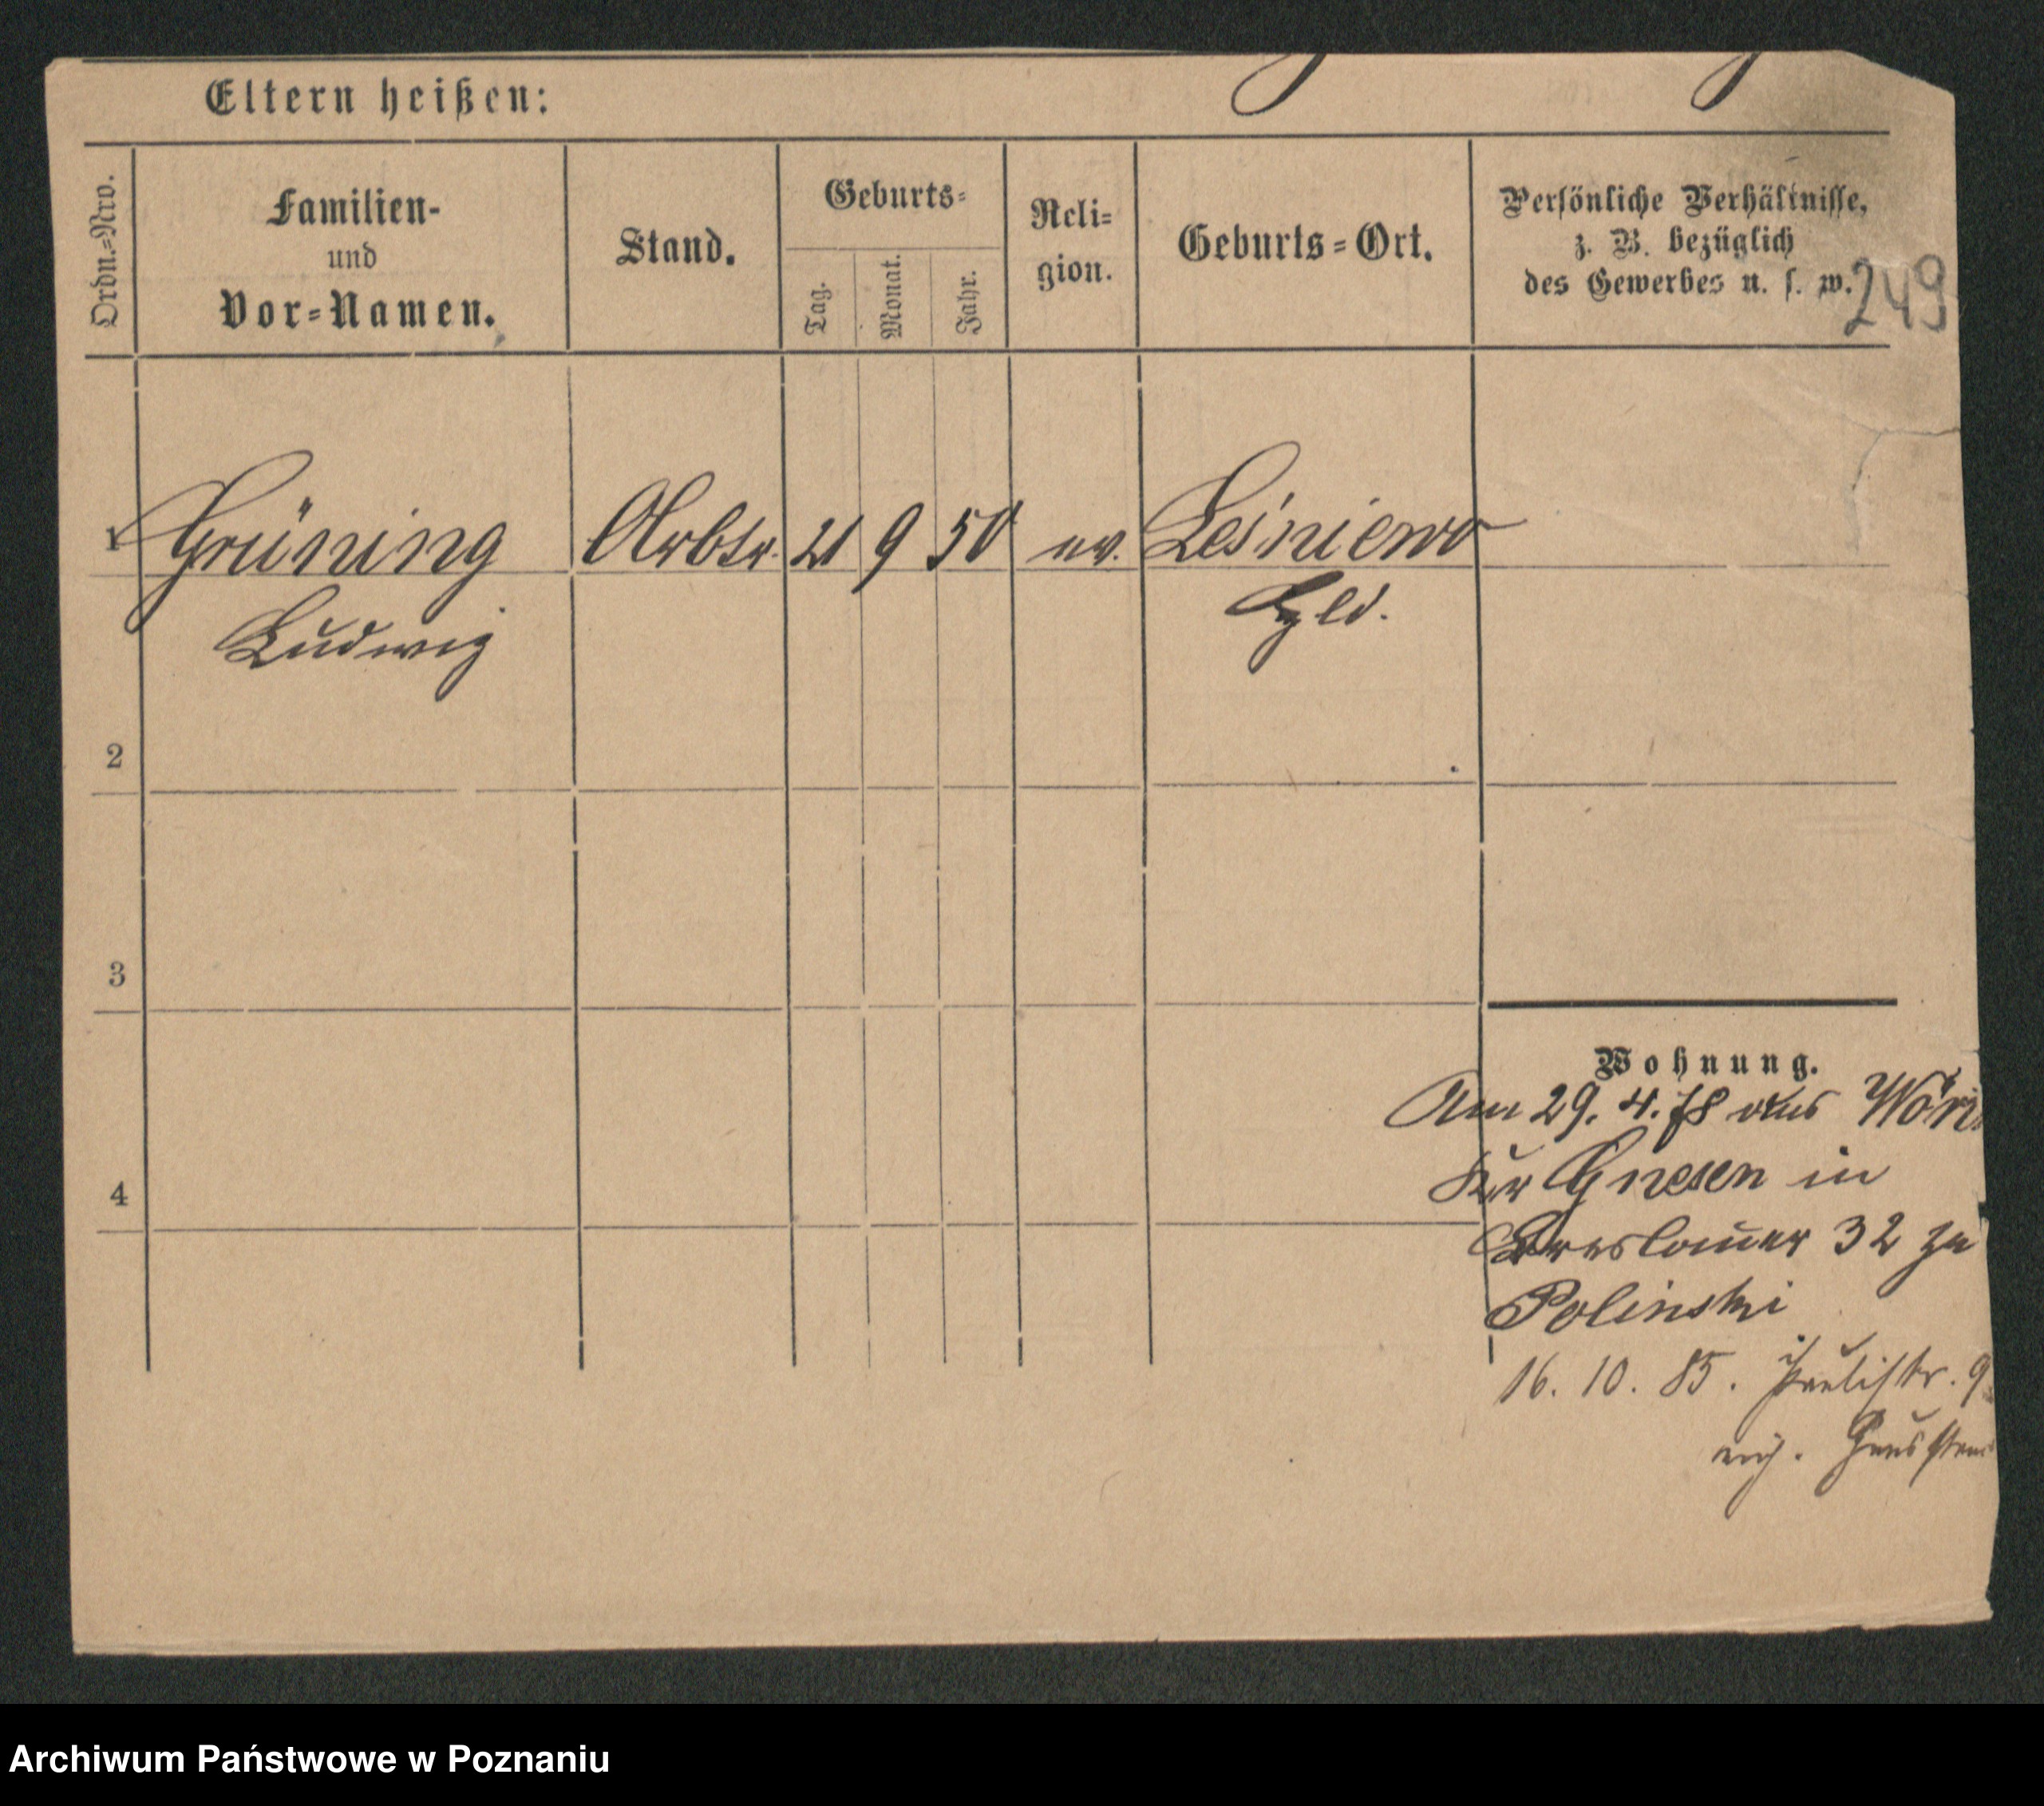 Eltern heißen:
Ordn.-Nro.
Familien-
und
Vor-Namen.
Stand.
Geburts-
Tag.
Monat.
Jahr.
Reli-
gion.
Geburts-Ort.
Persönliche Verhältnisse,
z. B. bezüglich
des Gewerbes u. s. w.
249
1 Grüning Arbtr. 21 9 50 ev. Leśniewo
Ludwig
2
3
4
Wohnung.
Am 29. 4. 78 aus
Gnesen in
Breslauer 32 zu
Polinski
16. 10. 85. Paulistr. 9
Archiwum Państwowe w Poznaniu